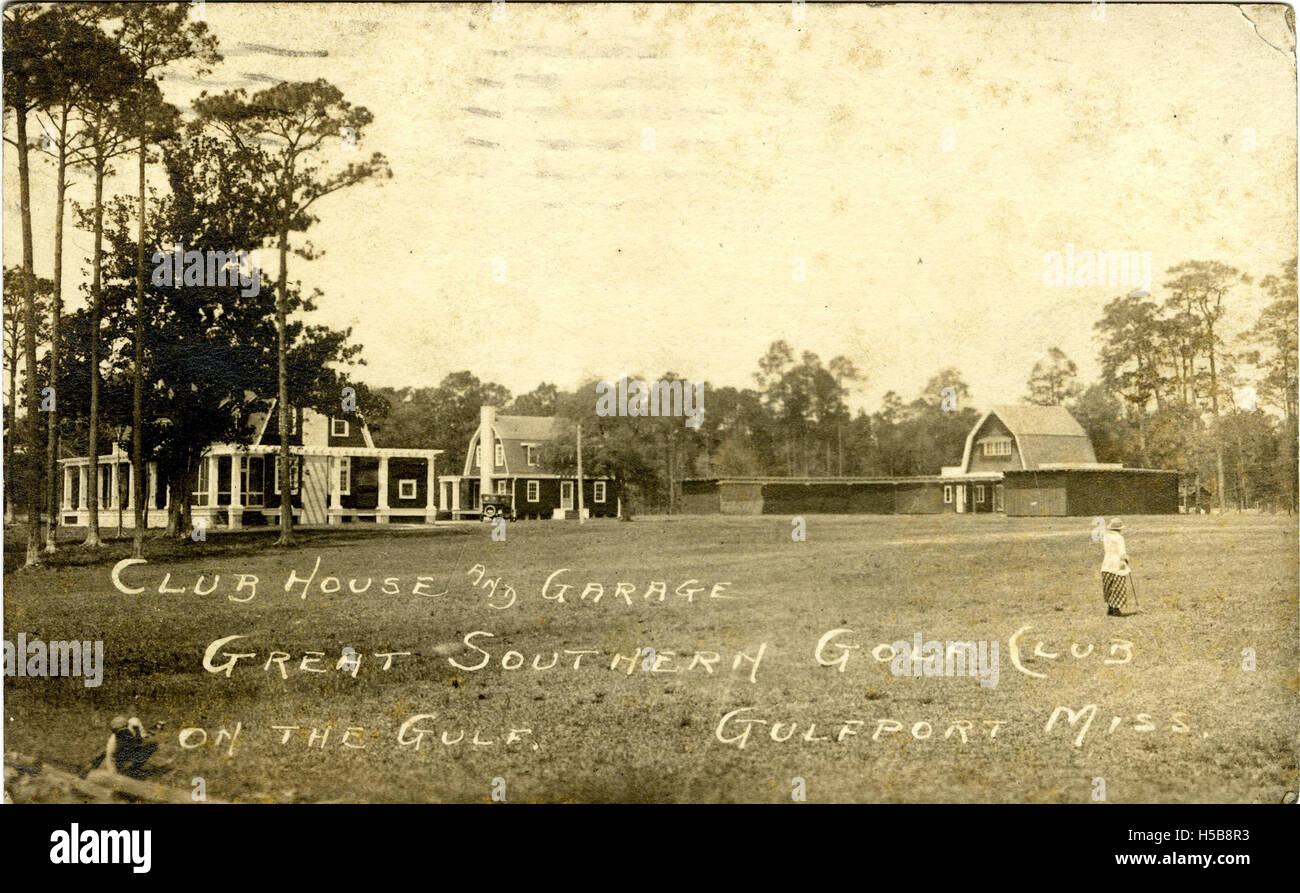 Club House and Garage
Great Southern Golf Club
on the Gulf. Gulfport Miss.
alamy
alamy
alamy
Image ID: H5B8R3
www.alamy.com